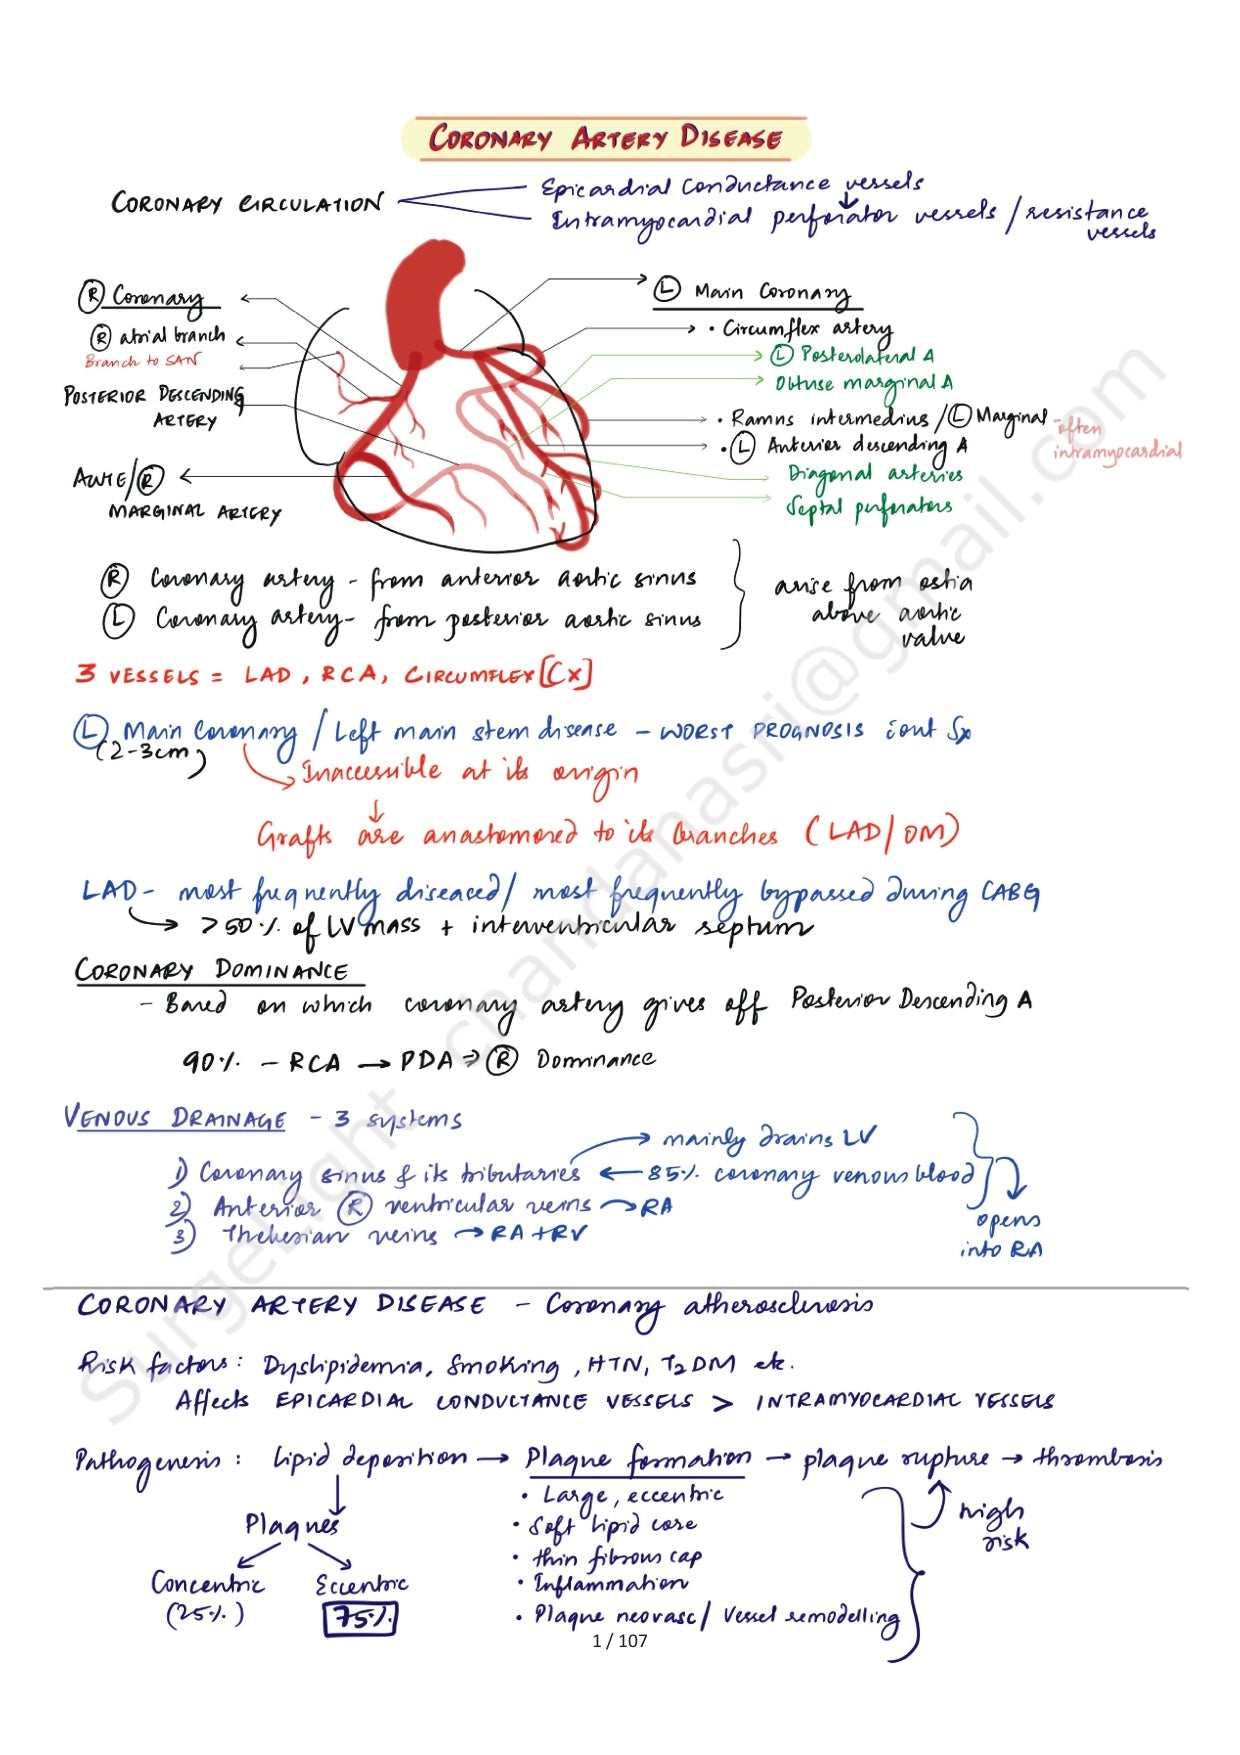 CORONARY ARTERY DISEASE
CORONARY CIRCULATION
Epicardial conductance vessels
↓
Intramyocardial perforator vessels / resistance vessels
Ⓡ Coronary
Ⓡ atrial branch
Branch to SAN
POSTERIOR DESCENDING ARTERY
ACUTE/Ⓡ MARGINAL ARTERY
Ⓛ Main Coronary
• Circumflex artery
Ⓛ Posterolateral A
Obtuse marginal A
• Ramus intermedius / Ⓛ Marginal - often intramyocardial
• Ⓛ Anterior descending A
Diagonal arteries
Septal perforators
Ⓡ Coronary artery - from anterior aortic sinus
Ⓛ Coronary artery - from posterior aortic sinus
arise from ostia
above aortic
valve
3 VESSELS = LAD, RCA, CIRCUMFLEX [Cx]
Ⓛ Main Coronary / Left main stem disease - WORST PROGNOSIS iout Sx
(2-3cm)
→ Inaccessible at its origin
↓
Grafts are anastomosed to its branches (LAD/OM)
LAD - most freqnently diseased/ most frequently bypassed during CABG
→ >50% of LV mass + interventricular septum
CORONARY DOMINANCE
- Based on which coronary artery gives off Posterior Descending A
90% - RCA → PDA ⇒ Ⓡ Dominance
VENOUS DRAINAGE - 3 systems
→ mainly drains LV
1) Coronary sinus & its tributaries ← 85% coronary venous blood
2) Anterior Ⓡ ventricular veins → RA
3) Thebesian veins → RA + RV
opens
into RA
CORONARY ARTERY DISEASE - Coronary atherosclerosis
Risk factors: Dyslipidemia, Smoking, HTN, T2DM etc.
Affects EPICARDIAL CONDUCTANCE VESSELS > INTRAMYOCARDIAL VESSELS
Pathogenesis: Lipid deposition → Plaque formation → plaque rupture → thrombosis
• Large, eccentric
• Soft lipid core
• thin fibrous cap
• Inflammation
• Plaque neovasc/ Vessel remodelling
high
risk
Plaques
Concentric
(25%)
Eccentric
75%
1 / 107
SurgeLight chandanasri@gmail.com